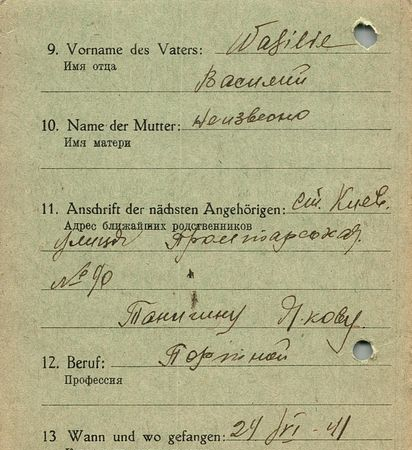 9. Vorname des Vaters: Wasilie
Имя отца
Василий
10. Name der Mutter: Неизвесно
Имя матери
11. Anschrift der nächsten Angehörigen: ст. Киев.
Адрес ближайших родственников
улица
№ 90
Танигину Якову.
12. Beruf: Портной
Профессия
13 Wann und wo gefangen: 24 VI - 41